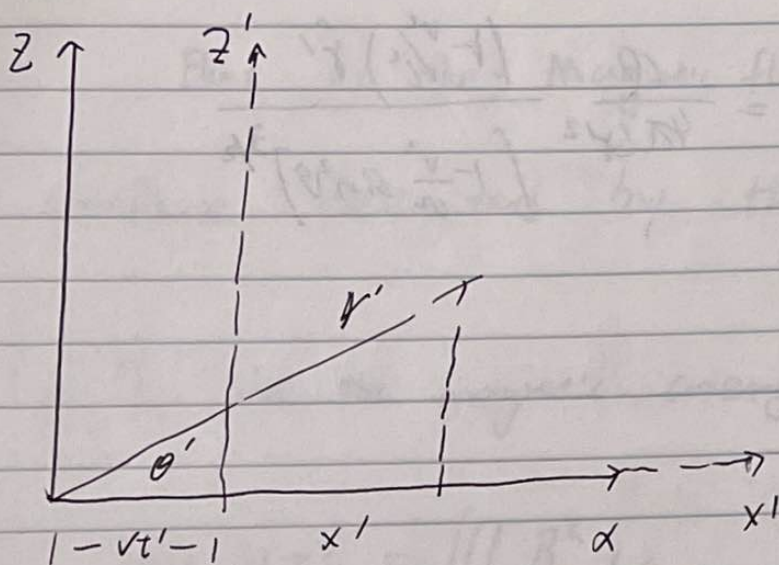 Z Z'
r'
θ'
|-vt'-| x' x x'